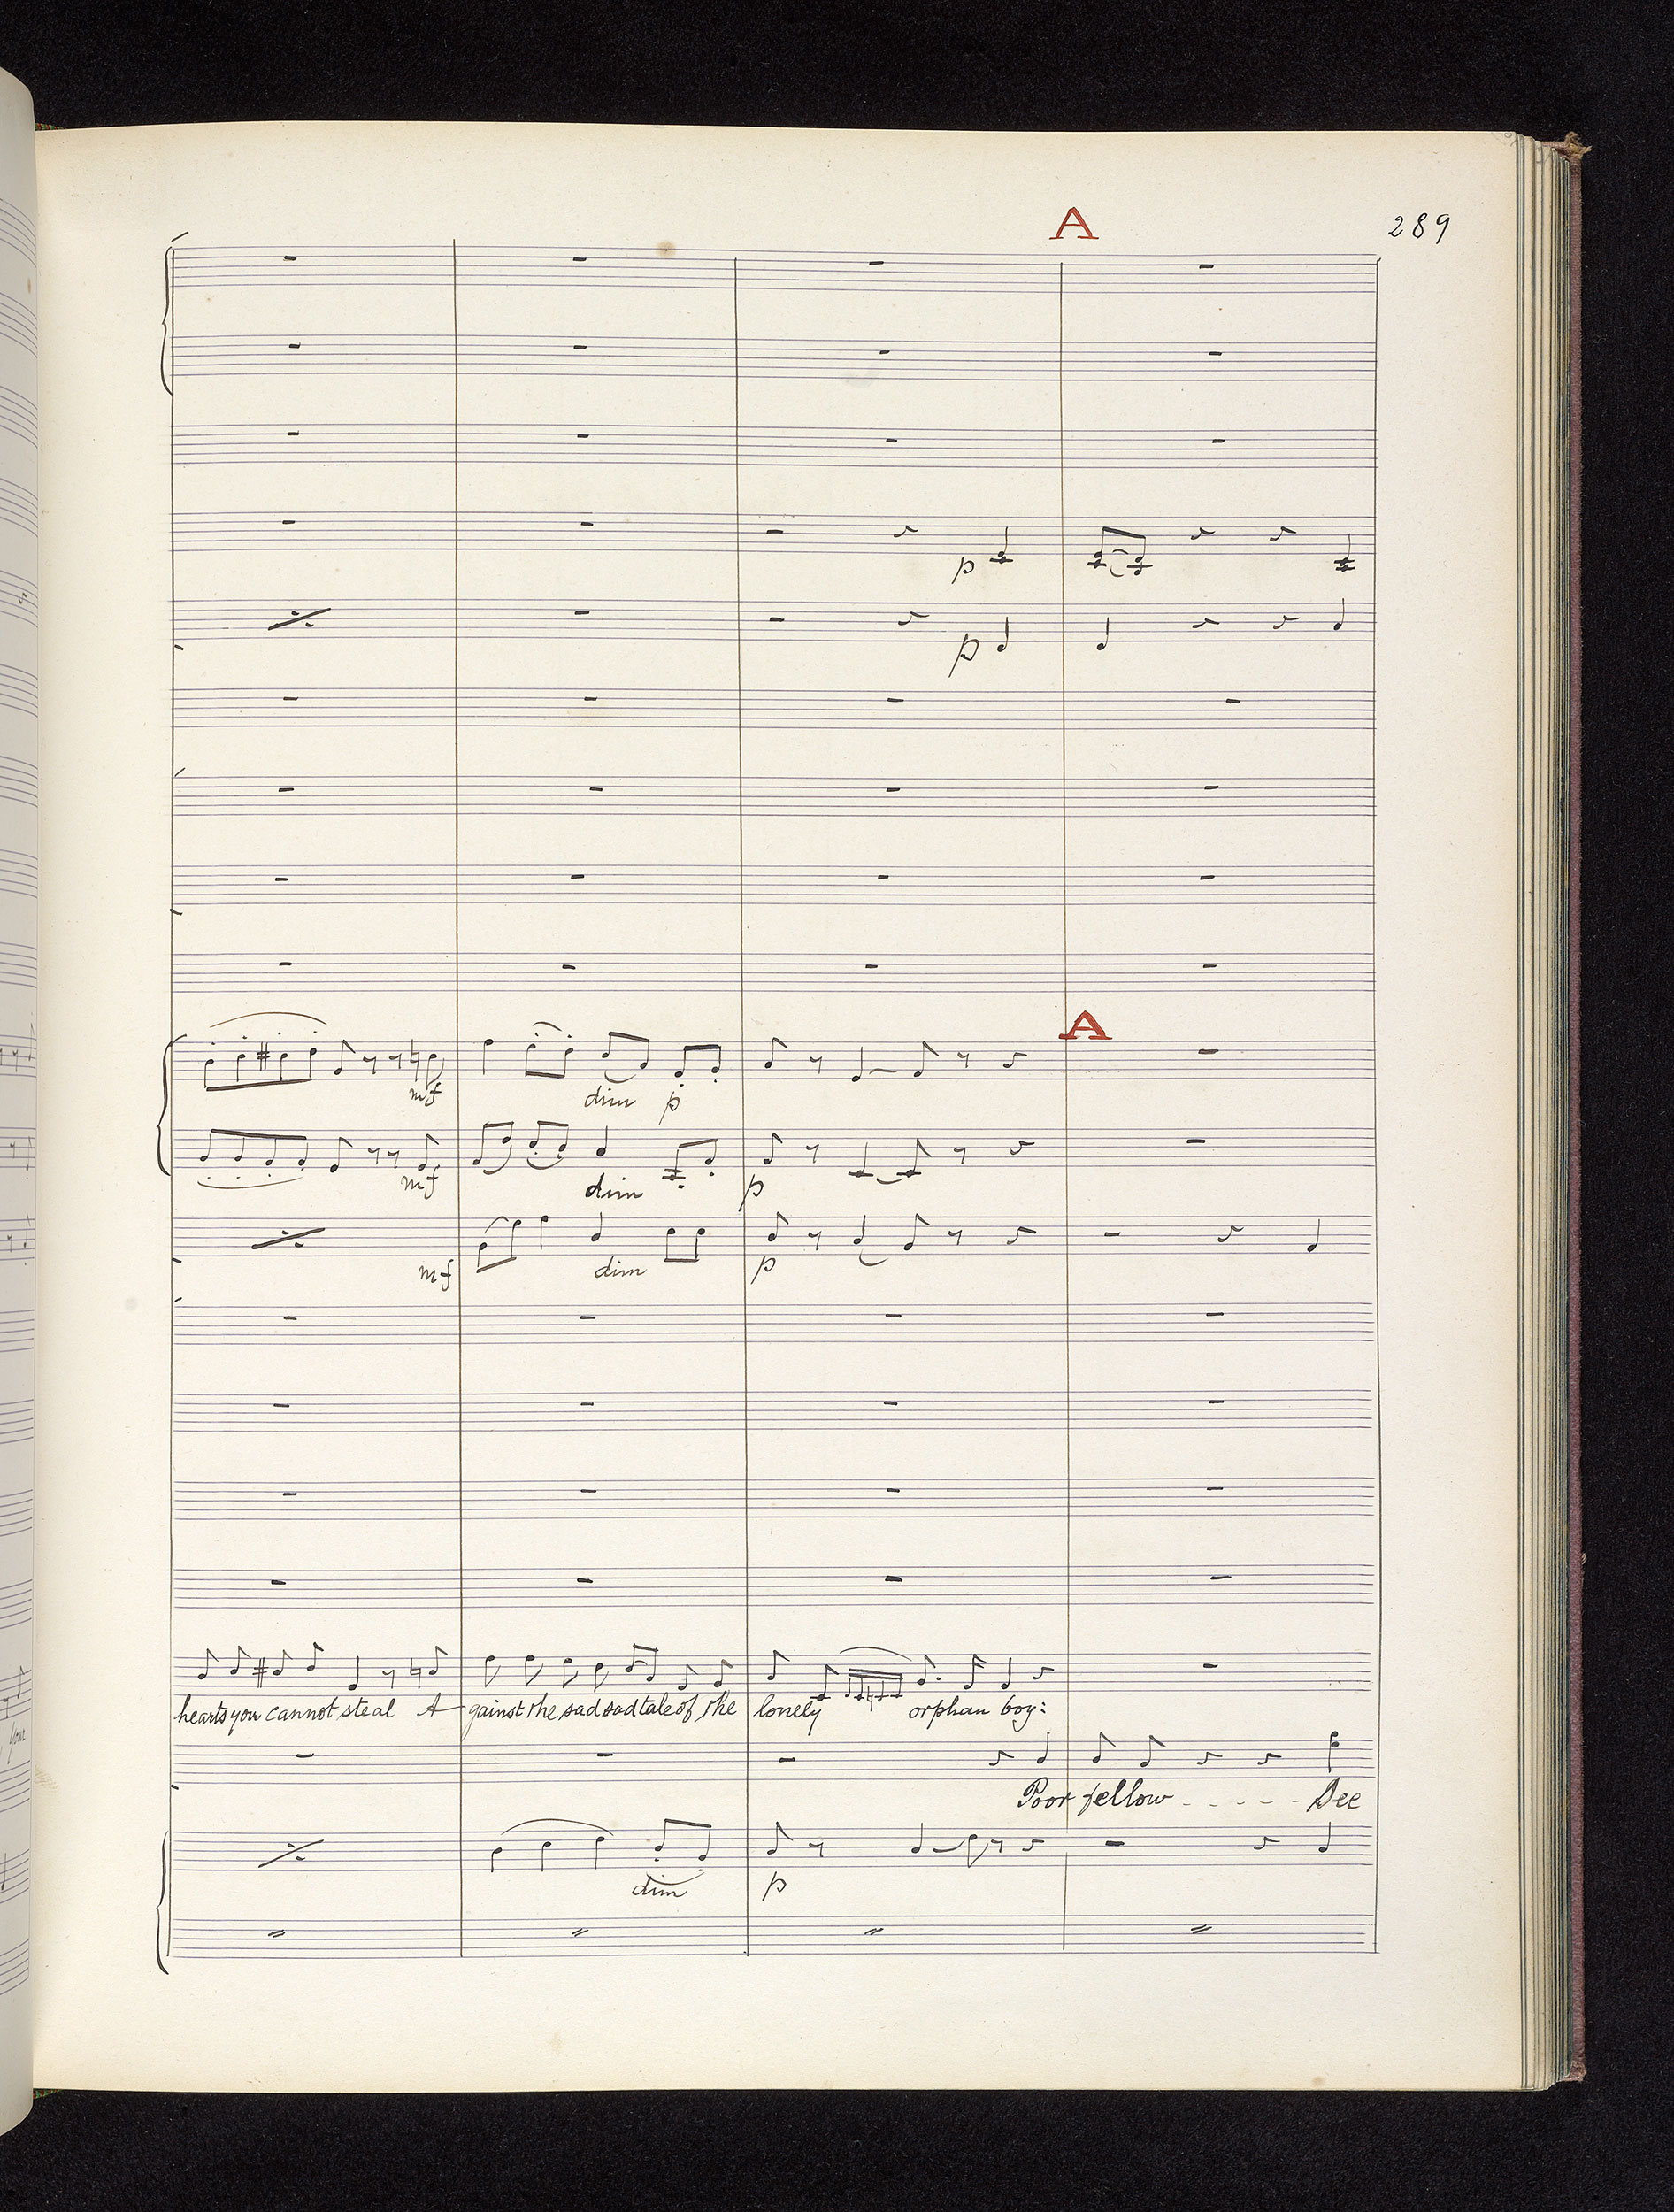 A
289
p
p
A
mf dim p
mf dim p
mf dim p
hearts you cannot steal A-gainst the sad sad tale of the lonely orphan boy:
Poor fellow - - - - - See
dim p